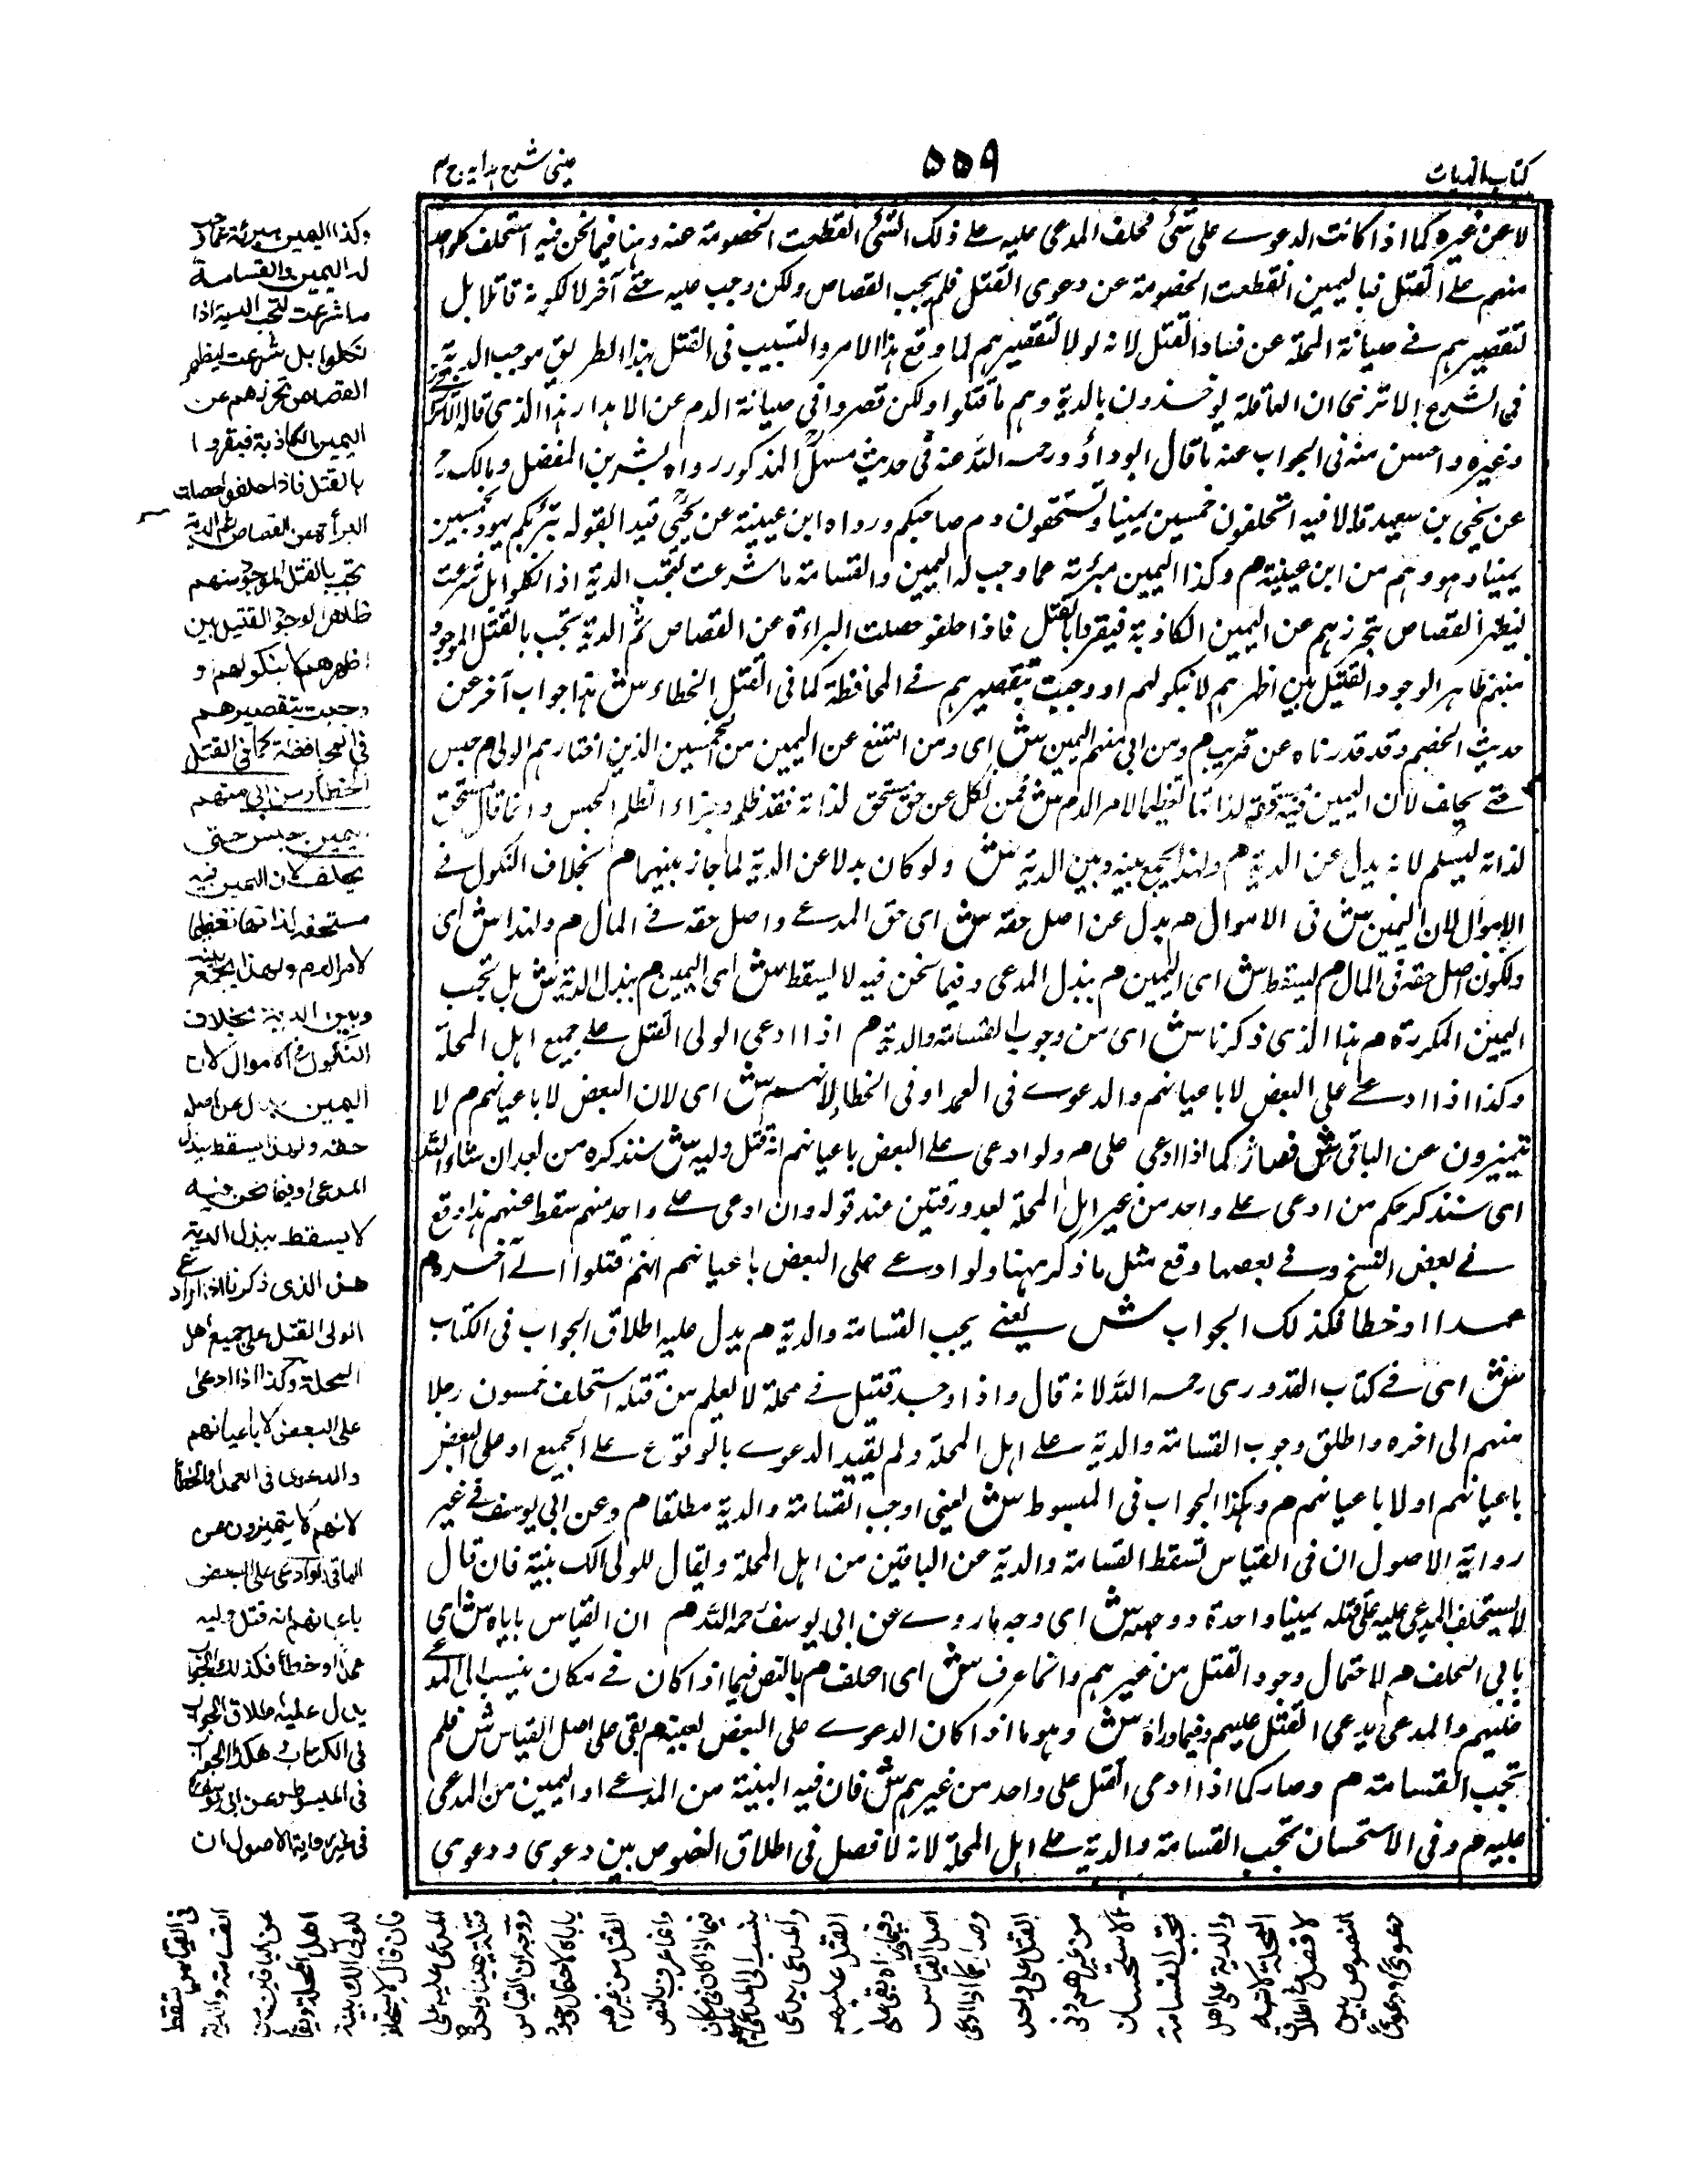 كتاب الديات
٥٥٩
عینی شرح ہدایہ ج ٣
لا عن غيره كما اذا كانت الدعوے على شئ فحلف المدعى عليه علے ذلك الشئ انقطعت الخصومة عنه وهنا فيما نحن فيه استحلف كل واحد
منهم علے القتل فباليمين انقطعت الخصومة عن دعوى القتل فلم يجب القصاص ولكن وجب عليه شئ آخر لا لكونه قاتلا بل
لتقصيرهم فے صيانة المحلة عن فساد القتل لانه لولا تقصيرهم لما وقع هذا الامر والتسبيب فى القتل بهذا الطريق موجب الدية
فى الشرع الا ترى ان العاقلة يؤخذون بالدية وهم ما قتلوا ولكن قصروا فى صيانة الدم عن الاهدار هذا الذى قاله
وغيره واحسن منه فى الجواب عنه ما قال ابو داؤد رحمه الله عنه فى حديث سهل المذكور رواه بشر بن المفضل ومالك
عن يحيى بن سعيد قالا فيه اتحلفون خمسين يمينا وتستحقون دم صاحبكم ورواه ابن عيينة عن يحيى فبدا بقوله تبرئكم يهود بخمسين
يمينا وهو وهم من ابن عيينة م وكذا اليمين مبرئة عما وجب له اليمين والقسامة ما شرعت لتجب الدية اذا نكلوا بل شرعت
ليظهر القصاص بتحرزهم عن اليمين الكاذبة فيقروا بالقتل فاذا حلفوا حصلت البراءة عن القصاص ثم الدية تجب بالقتل الموجود
منهم ظاهرا لوجود القتيل بين اظهرهم لا بنكولهم او وجبت بتقصيرهم فے المحافظة كما فى القتل الخطاء ش هذا جواب آخر عن
حديث الخصم وقد قدرناه عن قريب م ومن ابى منهم اليمين ش اى ومن امتنع عن اليمين من الخمسين الذين اختارهم الولى م حبس
حتے يحلف لان اليمين فيه مستحقة لذاتها تعظيما لامر الدم ش فمن نكل عن حق مستحق لذاته فقد ظلم وجزاء الظلم الحبس وانما قال مستحق
لذاته ليسلم لانه بدل عن الدية م ولهذا يجمع بينه وبين الدية ش ولو كان بدلا عن الدية لما جاز بينهما م بخلاف النكول فے
الاموال لان اليمين ش فى الاموال م بدل عن اصل حقه ش اى حق المدعے واصل حقه فے المال م ولهذا ش اى
ولكون اصل حقه فى المال م يسقط ش اى اليمين م ببذل المدعى وفيما نحن فيه لا يسقط ش اى اليمين م ببذل الدية ش بل تجب
اليمين المكررة م هذا الذى ذكرنا ش اى من وجوب القسامة والدية م اذا ادعى الولى القتل علے جميع اهل المحلة
وكذا اذا ادعے على البعض لا باعيانهم والدعوے فى العمد او فى الخطا لانهم ش اى لان البعض لا باعيانهم م لا
يتميزون عن الباقى ش فصار كما اذا ادعى على م ولو ادعى علے البعض باعيانهم انه قتل وليه ش سنذكره من بعد ان شاء الله
اى سنذكر حكم من ادعى علے واحد من غير اهل المحلة بعد ورقتين عند قوله وان ادعى علے واحد منهم سقط عنهم هذا وقع
فے بعض النسخ وفے بعضها وقع مثل ما ذكر ههنا ولو ادعے على البعض باعيانهم انهم قتلوا الے آخره م
عمدا او خطا فكذلك الجواب ش يعنے يجب القسامة والدية م يدل عليه اطلاق الجواب فى الكتاب
ش اى فے كتاب القدورى رحمه الله لانه قال واذا وجد قتيل فے محلة لا يعلم من قتله استحلف خمسون رجلا
منهم الى اخره واطلق وجوب القسامة والدية علے اهل المحلة ولم يقيد الدعوے بالوقوع علے الجميع او على البعض
باعيانهم او لا باعيانهم م وهكذا الجواب فى المبسوط ش يعنى اوجب القسامة والدية مطلقا م وعن ابى يوسف فے غير
رواية الاصول ان فى القياس تسقط القسامة والدية عن الباقين من اهل المحلة ويقال للولى الك بينة فان قال
لا يستحلف المدعى عليه على قتله يمينا واحدة ووجهه ش اى وجه ما روے عن ابى يوسف رحمه الله م ان القياس ياباه ش اى
يابى الحلف م لاحتمال وجود القتل من غيرهم وانما عرف ش اى الحلف م بالنص فيما اذا كان فے مكان ينسب الى المدعے
عليهم والمدعى يدعى القتل عليهم وفيما وراءه ش وهو ما اذا كان الدعوے على البعض بعينه م بقى على اصل القياس ش فلم
تجب القسامة م وصار كما اذا ادعى القتل على واحد من غيرهم ش فان فيه البينة من المدعے او اليمين من المدعى
عليه م وفى الاستحسان تجب القسامة والدية علے اهل المحلة لانه لا فصل فى اطلاق النصوص بين دعوى ودعوى
وكذا اليمين مبرئة عما وجب
له اليمين والقسامة
ما شرعت لتجب الدية اذا
نكلوا بل شرعت ليظهر
القصاص بتحرزهم عن
اليمين الكاذبة فيقروا
بالقتل فاذا حلفوا حصلت
البرأة عن القصاص ثم الدية
تجب بالقتل الموجود منهم
ظاهرا لوجود القتيل بين
اظهرهم لا بنكولهم و
وجبت بتقصيرهم
فى المحافظة كما فى القتل
الخطأ ومن ابى منهم
اليمين حبس حتى
يحلف لان اليمين فيه
مستحقة لذاتها تعظيما
لامر الدم ولهذا يجمع بينه
وبين الدية بخلاف
النكول فى الاموال لان
اليمين بدل عن اصل
حقه ولهذا يسقط ببذل
المدعى وفيما نحن فيه
لا يسقط ببذل الدية
هذا الذى ذكرنا اذا ادعى
الولى القتل على جميع اهل
المحلة وكذا اذا ادعى
على البعض لا باعيانهم
والدعوى فى العمد او الخطأ
لانهم لا يتميزون عن
الباقى ولو ادعى على البعض
باعيانهم انه قتل وليه
عمدا او خطأ فكذلك الجواب
يدل عليه اطلاق الجواب
فى الكتاب وهكذا الجواب
فى المبسوط وعن ابى يوسف
فى غير رواية الاصول ان
فى القياس تسقط
القسامة والدية
عن الباقين من
اهل المحلة ويقال
للولى الك بينة
فان قال لا يستحلف
المدعى عليه على
قتله يمينا واحدة
ووجهه ان القياس
ياباه لاحتمال وجود
القتل من غيرهم
وانما عرف بالنص
فيما اذا كان فى مكان
ينسب الى المدعى عليهم
والمدعى يدعى
القتل عليهم
وفيما وراءه بقى على
اصل القياس
وصار كما اذا ادعى
القتل على واحد
من غيرهم وفى
الاستحسان
تجب القسامة
والدية على اهل
المحلة لانه
لا فصل فى اطلاق
النصوص بين
دعوى ودعوى